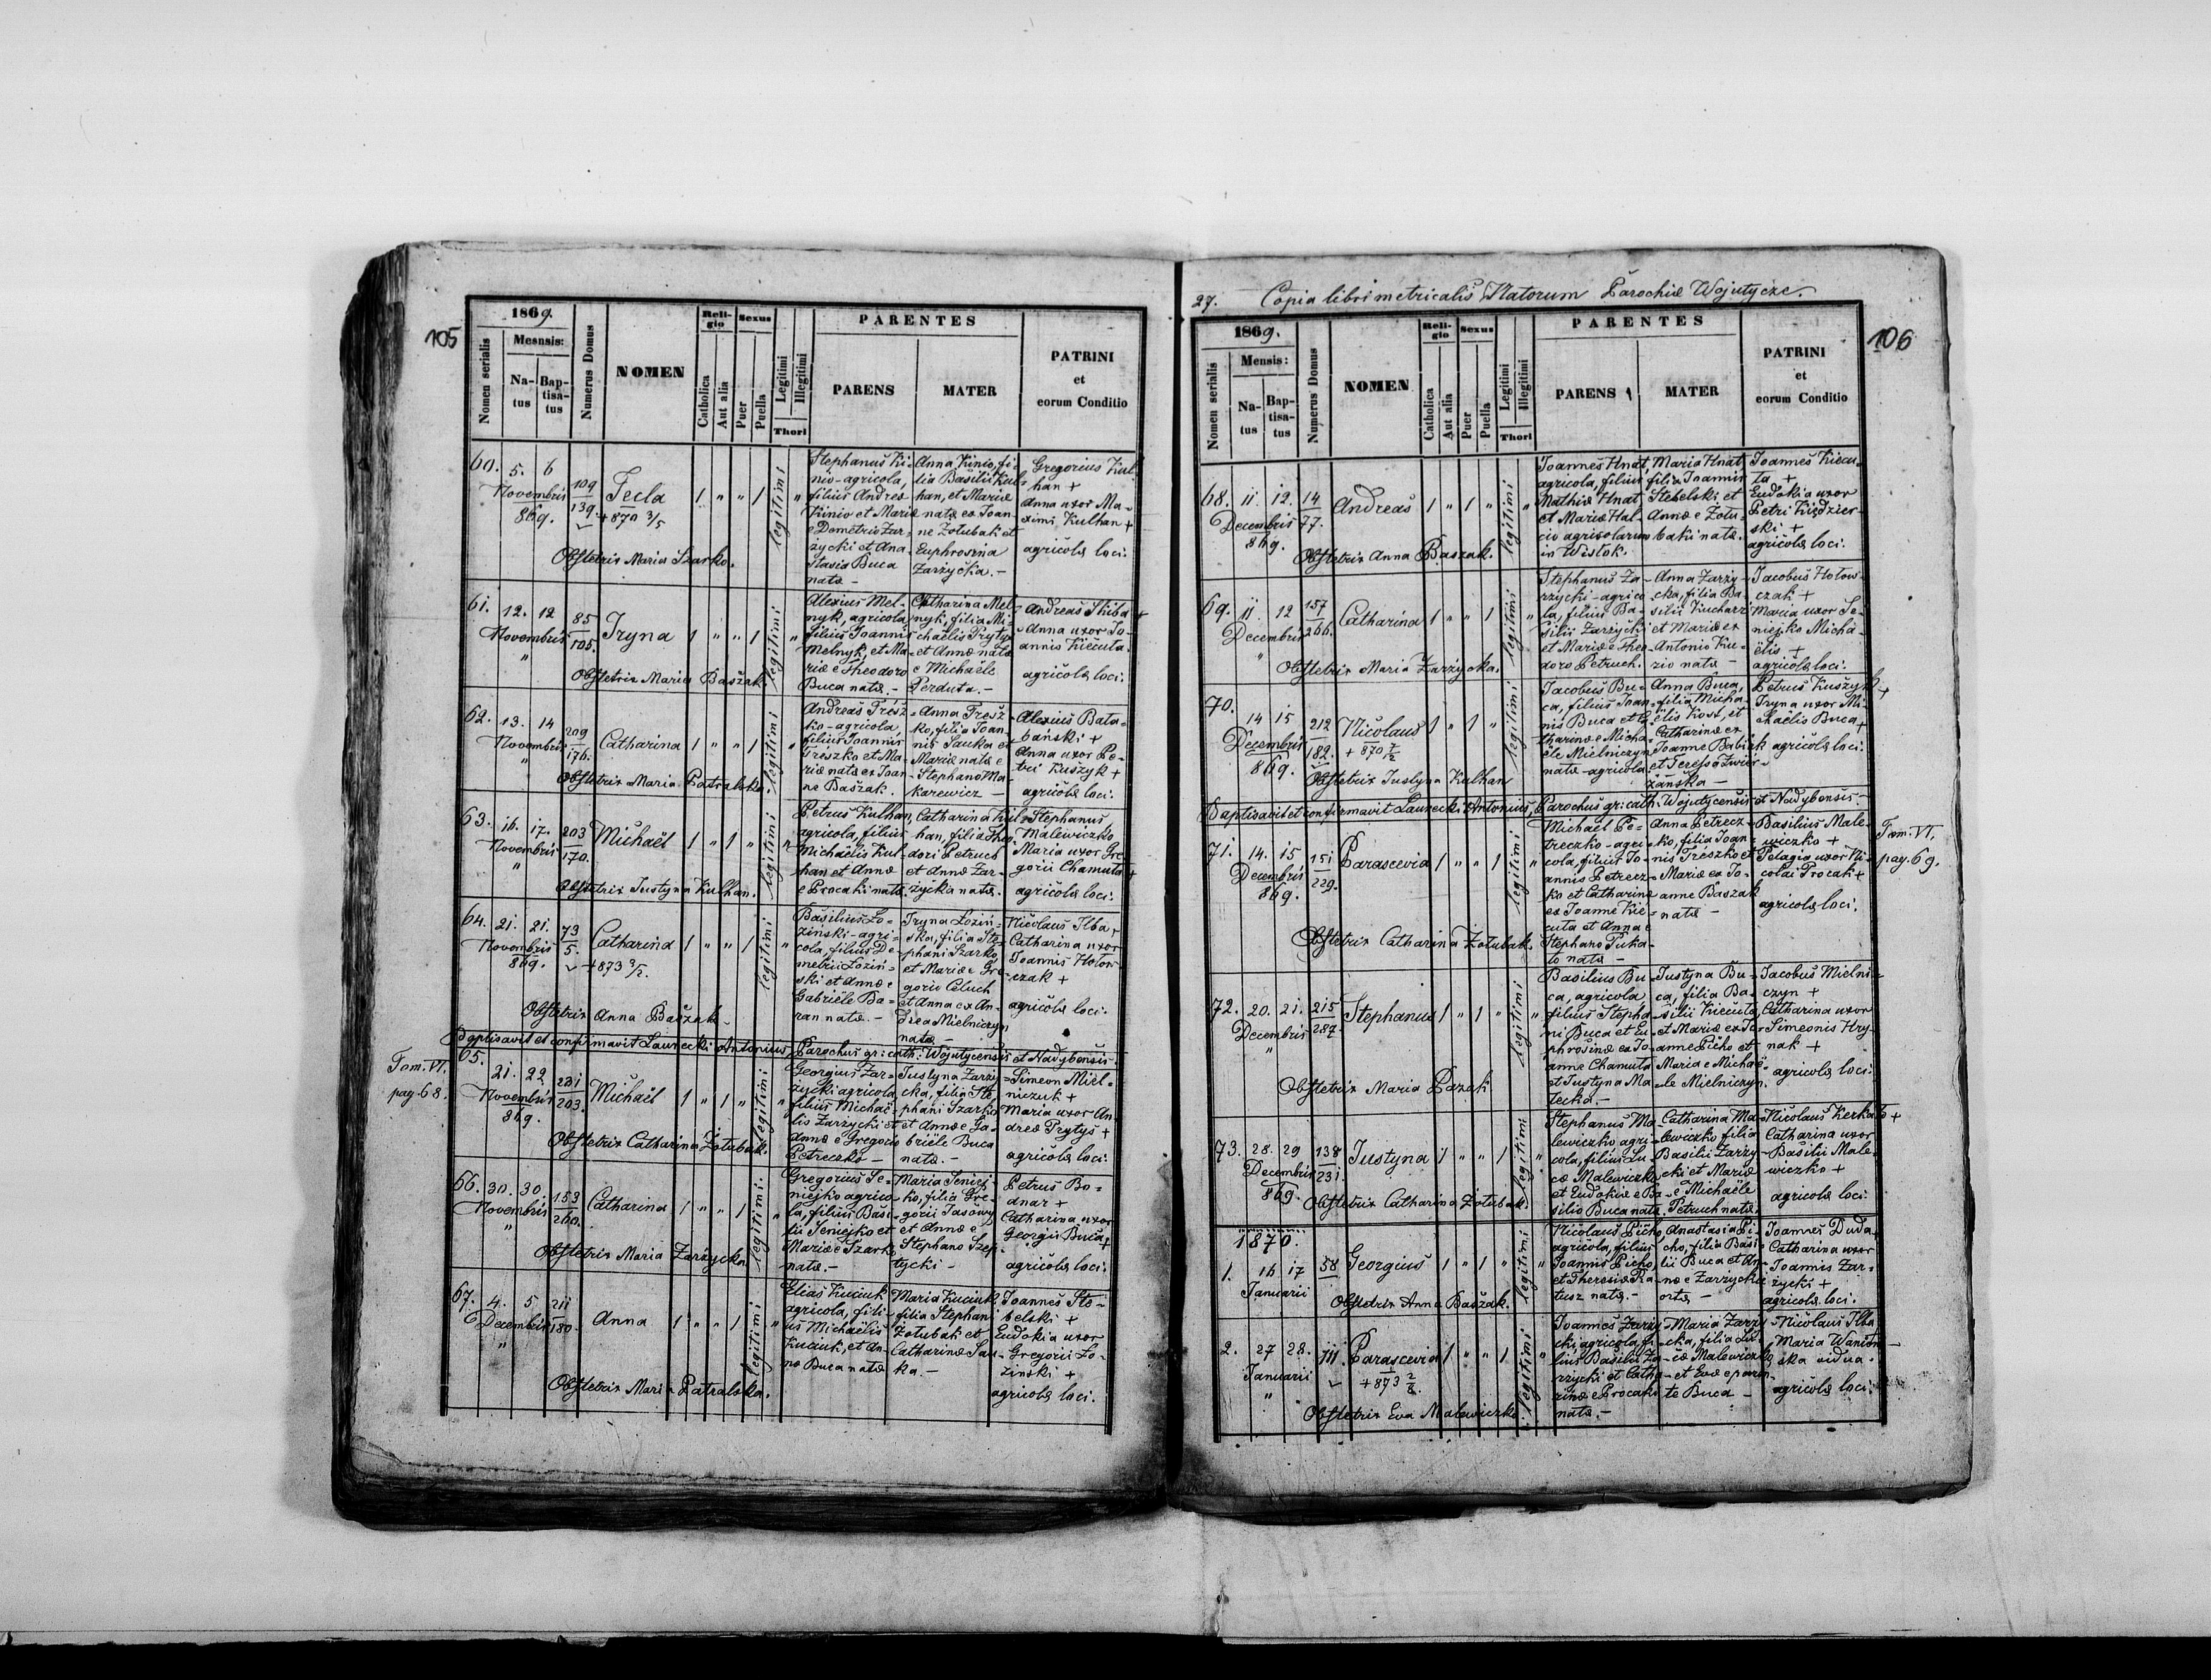 105
1869.
Mesnsis:
Nomen serialis
Na-
tus
Bap-
tisa-
tus
Numerus Domus
NOMEN
Reli-
gio
Catholica
Aut alia
Sexus
Puer
Puella
Legitimi
Illegitimi
Thori
PARENTES
PARENS
MATER
PATRINI
et
eorum Conditio
60. 5. 6
Novembris
869.
109
139.
Tecla
+ 870 3/5
1 " " 1
legitimi
"
Stephanus Ki-
nio-agricola,
filius Andreæ
Kinio et Mariæ
e Demetrio Zar-
zycki et Ana-
stasia Buca
nata -
Anna Kinio, fi-
lia Basilii Kul-
han, et Mariæ
natæ ex Joan-
ne Zołubak et
Euphrosina
Zarzycka. -
Gregorius Kul-
han +
Anna uxor Ma-
ximi Kulhan +
agricolæ loci.
Obstetrix Maria Szarko.
61. 12. 12
Novembris
"
85
105.
Iryna
1 " " 1
legitimi
"
Alexius Mel-
nyk, agricola,
filius Joannis
Melnyk, et Ma-
riæ e Theodoro
Buca natæ. -
Catharina Mel-
nyk, filia Mi-
chaëlis Prytys
et Annæ natæ
e Michaële
Perduta. -
Andreas Skiba +
Anna uxor Jo-
annis Kiecuta.
agricolæ loci.
Obstetrix Maria Baszak.
62. 13. 14
Novembris
"
209
176.
Catharina
1 " " 1
legitimi
"
Andreas Tresz-
ko-agricola,
filius Joannis
Treszko et Ma-
riæ natæ ex Joan-
ne Baszak.
Anna Tresz-
ko, filia Joan-
nis Sauka et
Mariæ natæ e
Stephano Ma-
karewicz -
Alexius Bata-
bański +
Anna uxor Pe-
tri Kuszyk +
agricolæ loci.
Obstetrix Maria Patralska.
63. 16. 17.
Novembris
"
203
170.
Michaël
1 " 1 "
legitimi
"
Petrus Kulhan,
agricola, filius
Michaëlis Kul-
han et Annæ
e Procaki natæ.
Catharina Kul-
han, filia Theo-
dori Petruch
et Annæ Zar-
zycka natæ.
Stephanus
Malewiczko
Maria uxor Gre-
gorii Chamuta +
agricolæ loci.
Obstetrix Justyna Kulhan.
64. 21. 21.
Novembris
869.
73
5.
Catharina
+ 873 3/2.
1 " " 1
legitimi
"
Basilius Ło-
ziński-agri-
cola, filius De-
metrii Łoziń-
ski et Annæ e
Gabriële Ba-
ran natæ. -
Iryna Łoziń-
ska, filia Ste-
phani Szarko
et Mariæ e Gre-
gorio Celuch
et Anna ex An-
drea Mielniczyn
natæ -
Nicolaus Ilba +
Catharina uxor
Joannis Hołow-
czak +
agricolæ loci.
Obstetrix Anna Baszak -
Baptisavit et confirmavit Laurecki Antonius, Parochus gr: cath: Wojutycensis et Nadybensis -
Tom. VI.
pag. 68.
65. 21. 22.
Novembris
869.
231
203.
Michaël
1 " 1 "
legitimi
"
Georgius Zar-
zycki agricola
filius Michaë-
lis Zarzycki et
Annæ e Gregorio
Petreczko -
Justyna Zarzy-
cka, filia Ste-
phani Szarko
et Annæ e Ga-
briële Buca
natæ. -
Simeon Miel-
niczuk +
Maria uxor An-
dreæ Prytys +
agricolæ loci.
Obstetrix Catharina Zołubak.
66. 30. 30.
Novembris
"
153
260.
Catharina
1 " " 1
legitimi.
"
Gregorius Se-
niejko agrico-
la, filius Basi-
lii Seniejko et
Mariæ e Szarko
natæ. -
Maria Seniej-
ko, filia Gre-
gorii Jasowy
et Annæ e
Stephano Szep-
tycki -
Petrus Bo-
dnar +
Catharina uxor
Georgii Buca +
agricolæ loci.
Obstetrix Maria Zarzycka
67. 4. 5.
Decembris
"
211
180.
Anna
1 " " 1
legitimi
"
Elias Kuciuk
agricola, fili-
us Michaëlis
Kuciuk, et An-
na Buca natæ
Maria Kuciuk
filia Stephani
Zołubak et
Catharinæ Sau-
ka. -
Joannes Ste-
belski +
Eudokia uxor
Gregorii Ło-
ziński +
agricolæ loci.
Obstetrix Maria Patralska.
27. Copia libri metricalis Natorum Parochiæ Wojutycze.
106
1869.
Mensis:
Nomen serialis
Na-
tus
Bap-
tisa-
tus
Numerus Domus
NOMEN
Reli-
gio
Catholica
Aut alia
Sexus
Puer
Puella
Legitimi
Illegitimi
Thori
PARENTES
PARENS
MATER
PATRINI
et
eorum Conditio
68. 11. 12.
Decembris
869.
14
77.
Andreas
1 " 1 "
legitimi
"
Joannes Hnat,
agricola, filius
Mathiæ Hnat
et Mariæ Hal-
cio agricolarum
in Wisłok.
Maria Hnat
filia Joannis
Stebelski et
Annæ e Zołu-
baki natæ.
Joannes Kiecu-
ta +
Eudokia uxor
Petri Kiędzier-
ski +
agricolæ loci.
Obstetrix Anna Baszak.
69. 11 12
Decembris
"
157
266.
Catharina
1 " " 1
legitimi
"
Stephanus Za-
rzycki-agrico-
la, filius Ba-
silii Zarzycki
et Mariæ e Theo-
doro Petruch.
Anna Zarzy-
cka, filia Ba-
silii Kucharz
et Mariæ ex
Antonio Ku-
rio natæ -
Jacobus Hołow-
czak +
Maria uxor Se-
niejko Micha-
ëlis +
agricolæ loci.
Obstetrix Maria Zarzycka.
70. 14 15
Decembris
869.
212
182.
Nicolaus
+ 870 7/2
1 " 1 "
legitimi
"
Jacobus Bu-
ca, filius Joan-
nis Buca et Ca-
tharinæ e Micha-
ële Mielniczyn
natæ-agricola
Anna Buca,
filia Micha-
ëlis Kost, et
Catharinæ ex
Joanne Babiak
et Teressa Zwier-
żańska -
Petrus Kuszyk +
Iryna uxor Mi-
chaëlis Buca +
agricolæ loci.
Obstetrix Justyna Kulhan
Baptisavit et confirmavit Laurecki Antonius, Parochus gr: cath: Wojutycensis et Nadybensis -
71. 14. 15
Decembris
869.
151
229.
Parascevia
1 " " 1
legitimi
"
Michaël Pe-
treczko-agri-
cola, filius Jo-
annis Petrecz-
ko et Catharinæ
ex Joanne Kie-
cuta et Anna e
Stephano Puka-
to natæ -
Anna Petrecz-
ko, filia Joan-
nis Treszko et
Mariæ ex Jo-
anne Baszak
natæ -
Basilius Male-
wiczko +
Pelagia uxor Ni-
colai Procak +
agricolæ loci.
Tom. VI,
pag. 69.
Obstetrix Catharina Zołubak.
72. 20. 21.
Decembris
"
215
287.
Stephanus
1 " 1 "
legitimi
"
Basilius Bu-
ca, agricola
filius Stepha-
ni Buca et Eu-
phrosinæ ex Jo-
anne Chamuta
et Justyna Ma-
tecka. -
Justyna Bu-
ca, filia Ba-
silii Kiecuta,
et Mariæ ex Jo-
anne Picho et
Maria e Michaë-
le Mielniczyn.
Jacobus Mielni-
czyn +
Catharina uxor
Simeonis Hry-
nak +
agricolæ loci.
Obstetrix Maria Pazak
73. 28. 29
Decembris
869.
138
231.
Justyna
1 " " 1
legitimi
"
Stephanus Ma-
lewiczko agri-
cola, filius Lu-
cæ Malewiczko
et Eudokiæ e Ba-
silio Buca natæ.
Catharina Ma-
lewiczko filia
Basilii Zarzy-
cki et Mariæ
e Michaële
Petruch natæ.
Nicolaus Kerkało +
Catharina uxor
Basilii Male-
wiczko +
agricolæ loci.
Obstetrix Catharina Zołubak.
1870.
1. 16 17
Januarii
58
Georgius
1 " 1 "
legitimi
"
Nicolaus Picho,
agricola, filius
Joannis Picho,
et Theresiæ Ra-
tusz natæ. -
Anastasia Pi-
cho, filia Basi-
lii Buca et An-
næ e Zarzycka
orta -
Joannes Duda
Catharina uxor
Joannis Zar-
zycki +
agricolæ loci.
Obstetrix Anna Baszak.
2. 27 28.
Januarii
"
111.
Parascevia
+ 873 2/8.
1 " " 1
legitimi
"
Joannes Zarzy-
cki, agricola, fi-
lius Basilii Za-
rzycki et Catha-
rinæ e Procaki
natæ. -
Maria Zarzy-
cka, filia Lu-
cæ Malewiczko
et Evæ e paren-
te Buca -
Nicolaus Ilba
Maria Waniow-
ska vidua.
agricolæ loci.
Obstetrix Eva Malewiczko.